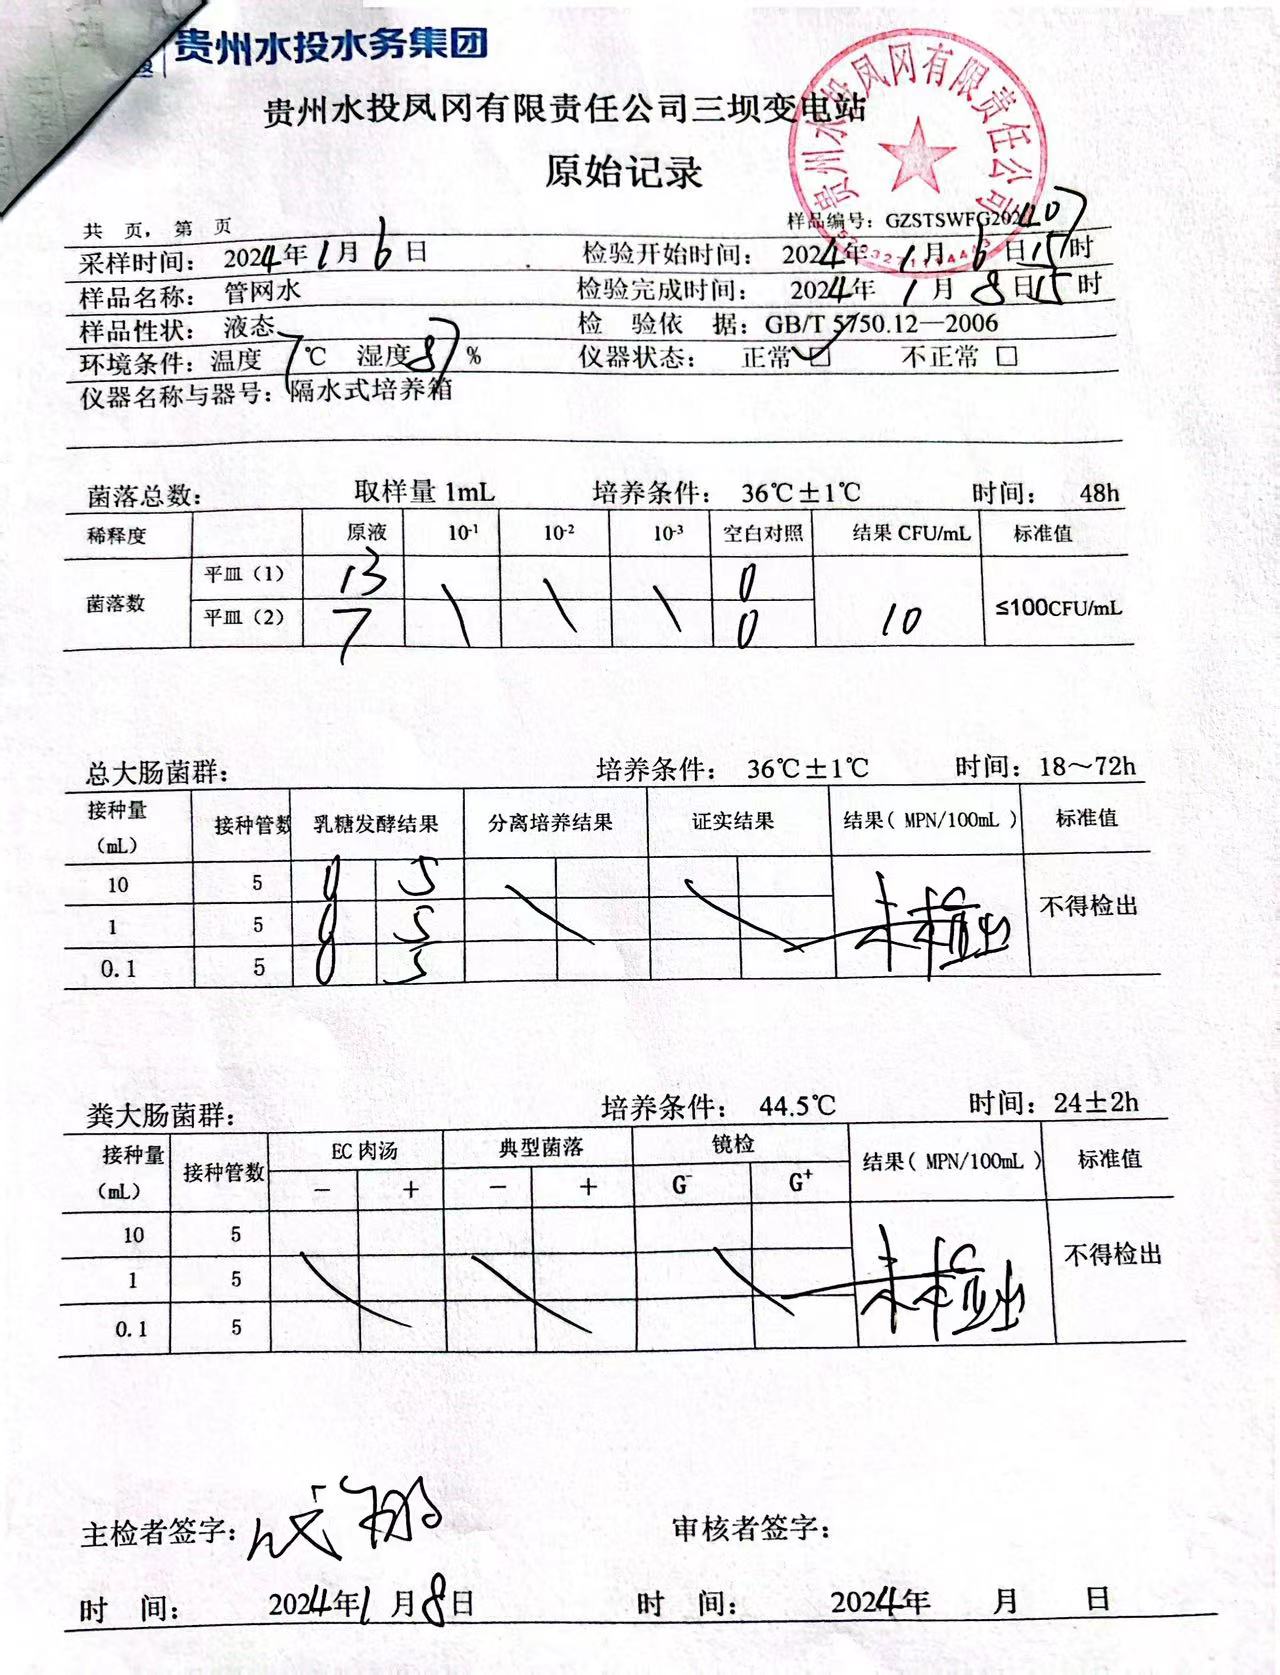 贵州水投水务集团
贵州水投凤冈有限责任公司三坝变电站
原始记录
贵州水投凤冈有限责任公司
共 页，第 页 样品编号：GZSTSWFG202
采样时间： 2024年1月6日 检验开始时间： 2024年1月6日15时
样品名称： 管网水 检验完成时间： 2024年1月8日15时
样品性状： 液态 检 验依 据：GB/T 5750.12—2006
环境条件：温度 7℃ 湿度87% 仪器状态： 正常 ✓□ 不正常 □
仪器名称与器号：隔水式培养箱
菌落总数： 取样量 1mL 培养条件： 36℃±1℃ 时间： 48h
稀释度 原液 10-1 10-2 10-3 空白对照 结果 CFU/mL 标准值
菌落数 平皿（1） 13 \ \ \ 0 10 ≤100CFU/mL
平皿（2） 7 0
总大肠菌群： 培养条件： 36℃±1℃ 时间：18～72h
接种量（mL） 接种管数 乳糖发酵结果 分离培养结果 证实结果 结果（ MPN/100mL ） 标准值
10 5 0 5 未检出 不得检出
1 5 0 5
0.1 5 0 5
粪大肠菌群： 培养条件： 44.5℃ 时间：24±2h
接种量（mL） 接种管数 EC 肉汤 典型菌落 镜检 结果（ MPN/100mL ） 标准值
－ ＋ － ＋ G- G+
10 5 未检出 不得检出
1 5
0.1 5
主检者签字： 审核者签字：
时 间： 2024年1月8日 时 间： 2024年 月 日